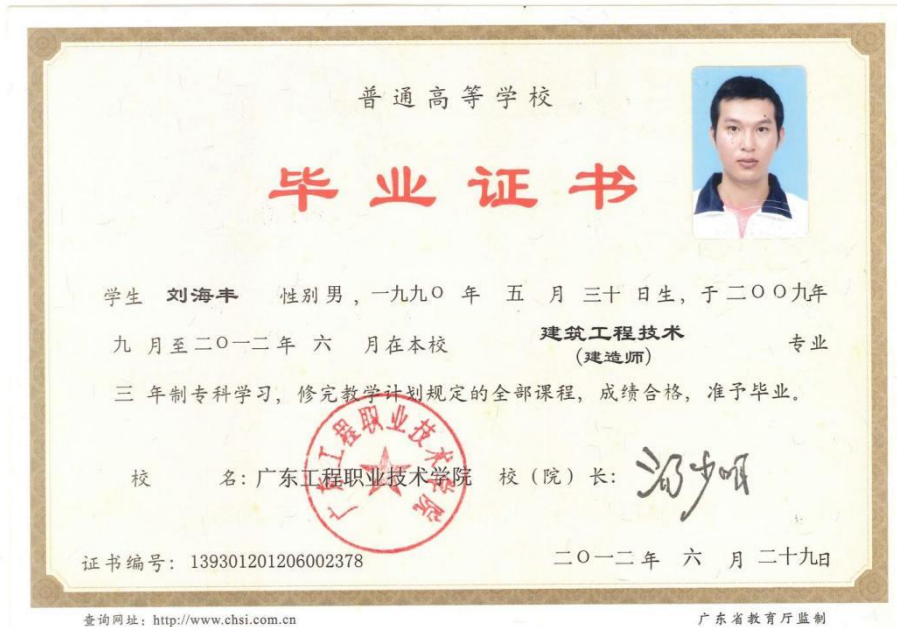 普通高等学校
毕业证书
学生 刘海丰 性别男，一九九〇年 五 月 三十 日生，于二〇〇九年
九 月至二〇一二年 六 月在本校 建筑工程技术 专业
(建造师)
三 年制专科学习，修完教学计划规定的全部课程，成绩合格，准予毕业。
广东工程职业技术学院
校 名：广东工程职业技术学院 校（院）长：
证书编号：139301201206002378 二〇一二年 六 月 二十九日
查询网址：http://www.chsi.com.cn 广东省教育厅监制